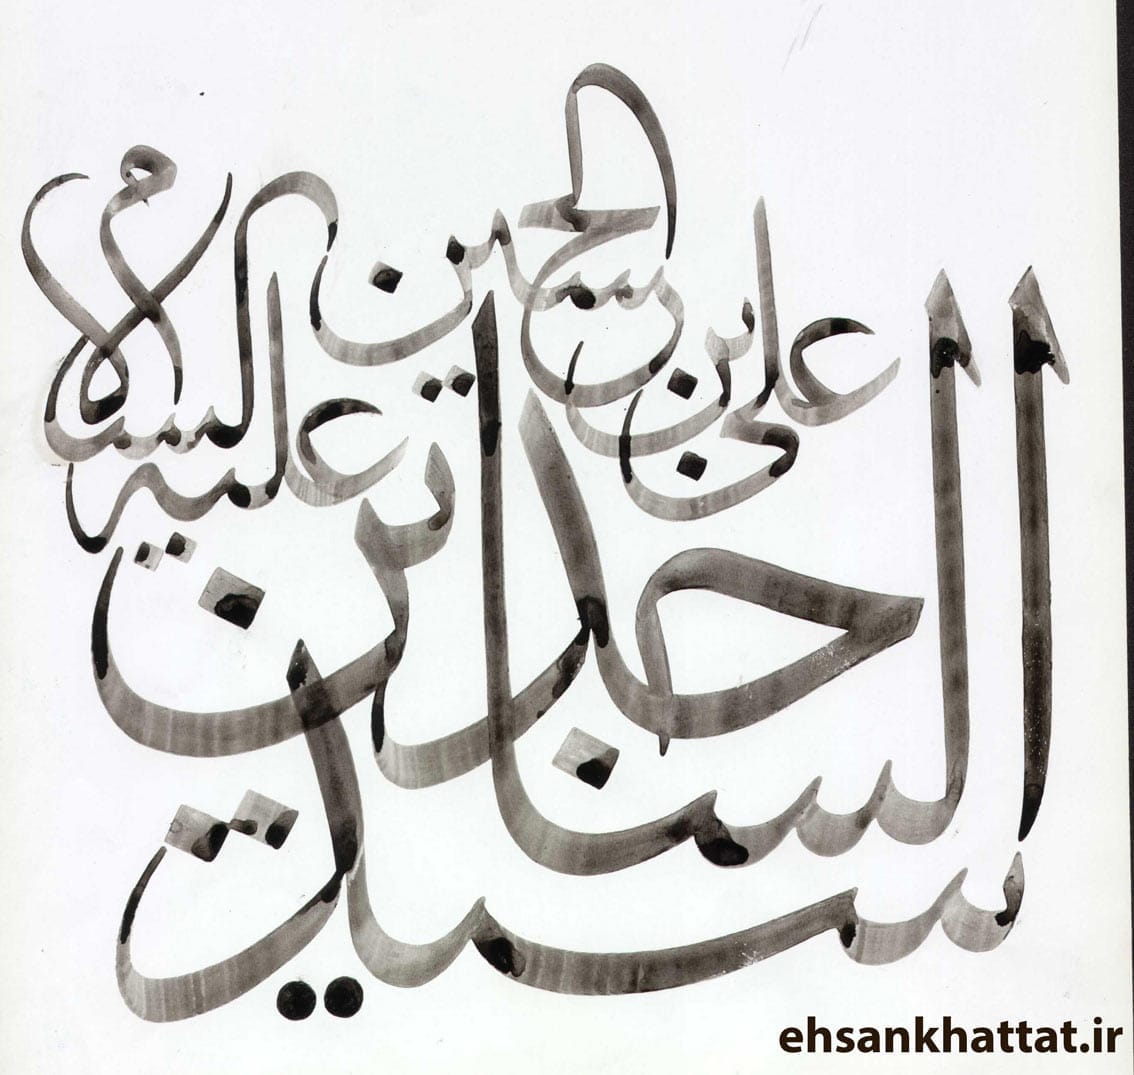 سید الساجدین
علی ابن الحسین
علیه السلام
ehsankhattat.ir